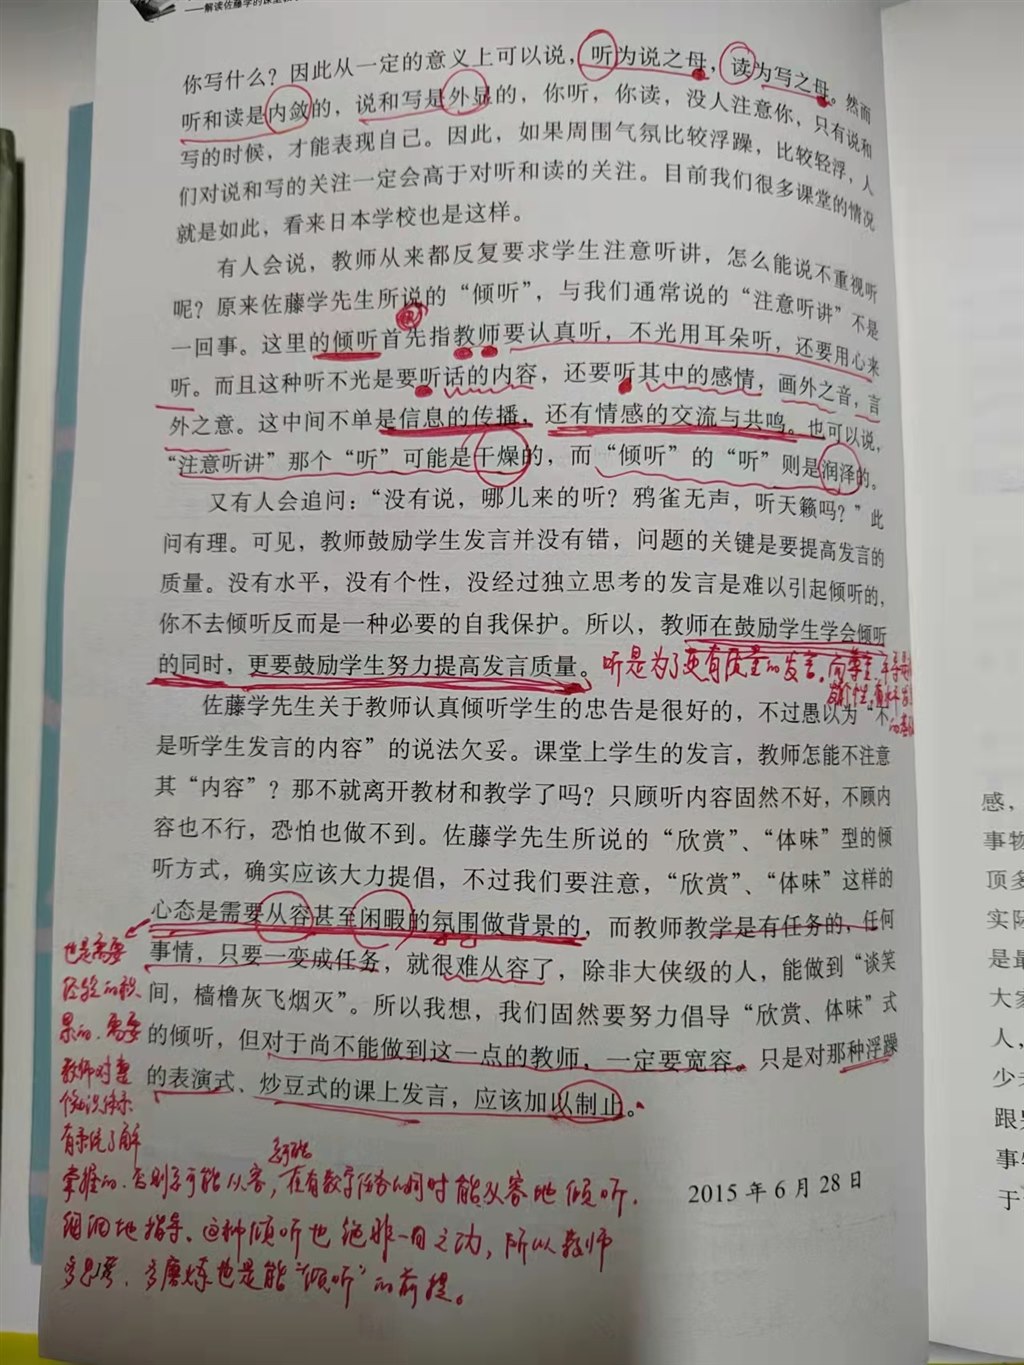 ——解读佐藤学的课堂
你写什么？因此从一定的意义上可以说，听为说之母，读为写之母。然而
听和读是内敛的，说和写是外显的，你听，你读，没人注意你，只有说和
写的时候，才能表现自己。因此，如果周围气氛比较浮躁，比较轻浮，人
们对说和写的关注一定会高于对听和读的关注。目前我们很多课堂的情况
就是如此，看来日本学校也是这样。
有人会说，教师从来都反复要求学生注意听讲，怎么能说不重视听
呢？原来佐藤学先生所说的“倾听”，与我们通常说的“注意听讲”不是
一回事。这里的倾听首先指教师要认真听，不光用耳朵听，还要用心来
听。而且这种听不光是要听话的内容，还要听其中的感情，画外之音，言
外之意。这中间不单是信息的传播，还有情感的交流与共鸣。也可以说，
“注意听讲”那个“听”可能是干燥的，而“倾听”的“听”则是润泽的。
又有人会追问：“没有说，哪儿来的听？鸦雀无声，听天籁吗？”此
问有理。可见，教师鼓励学生发言并没有错，问题的关键是要提高发言的
质量。没有水平，没有个性，没经过独立思考的发言是难以引起倾听的，
你不去倾听反而是一种必要的自我保护。所以，教师在鼓励学生学会倾听
的同时，更要鼓励学生努力提高发言质量。
听是为了更有质量的发言。
佐藤学先生关于教师认真倾听学生的忠告是很好的，不过愚以为“不
是听学生发言的内容”的说法欠妥。课堂上学生的发言，教师怎能不注意
其“内容”？那不就离开教材和教学了吗？只顾听内容固然不好，不顾内
容也不行，恐怕也做不到。佐藤学先生所说的“欣赏”、“体味”型的倾
听方式，确实应该大力提倡，不过我们要注意，“欣赏”、“体味”这样的
心态是需要从容甚至闲暇的氛围做背景的，而教师教学是有任务的，任何
事情，只要一变成任务，就很难从容了，除非大侠级的人，能做到“谈笑
间，樯橹灰飞烟灭”。所以我想，我们固然要努力倡导“欣赏、体味”式
的倾听，但对于尚不能做到这一点的教师，一定要宽容。只是对那种浮躁
的表演式、炒豆式的课上发言，应该加以制止。
2015年6月28日
也是需要
经验的积
累的．需要
教师对整
个知识体系
有系统了解
掌握的．否则不可能从容，不可能在有教学任务的同时能从容地倾听．
细细地指导。这种倾听也绝非一日之功，所以教师
多思考、多磨炼也是能“倾听”的前提。
感，
事物
顶多
实际
是最
大家
人，
少
跟
事
于